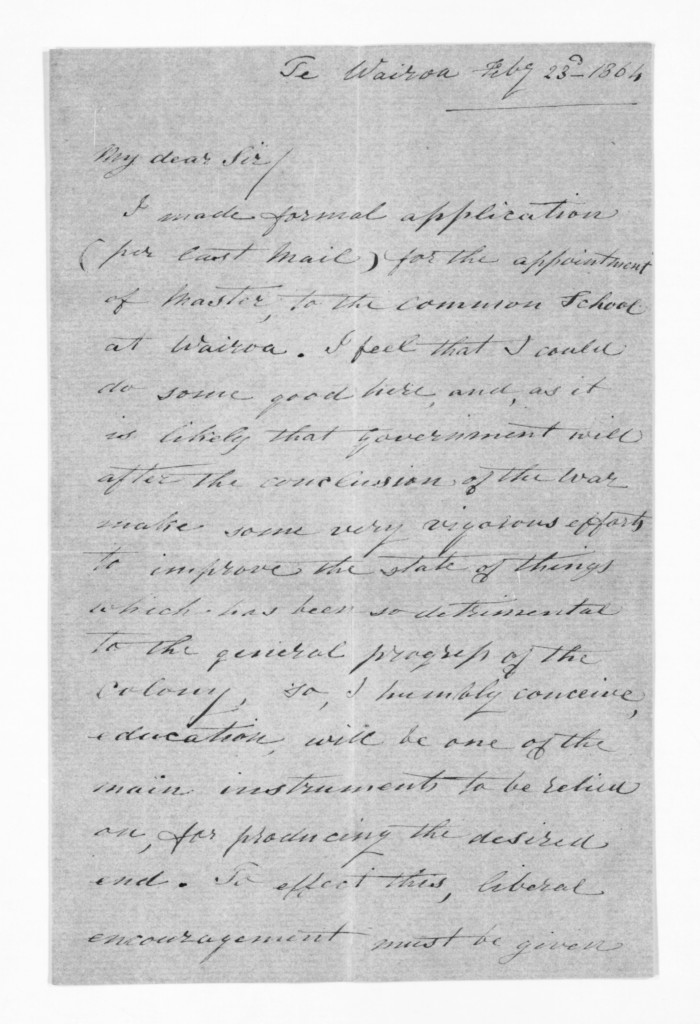 Te Wairoa Feby 23d 1864
My dear Sir/
I made formal application
(per last Mail) for the appointment
of Master, to the common School
at Wairoa. I feel that I could
do some good here, and, as it
is likely that Government will
after the conclusion of the War
make some very vigorous efforts
to improve the state of things
which has been so detrimental
to the general progress of the
Colony, so, I humbly conceive,
education, will be one of the
main instruments to be relied
on, for producing the desired
end. To effect this, liberal
encouragement must be given